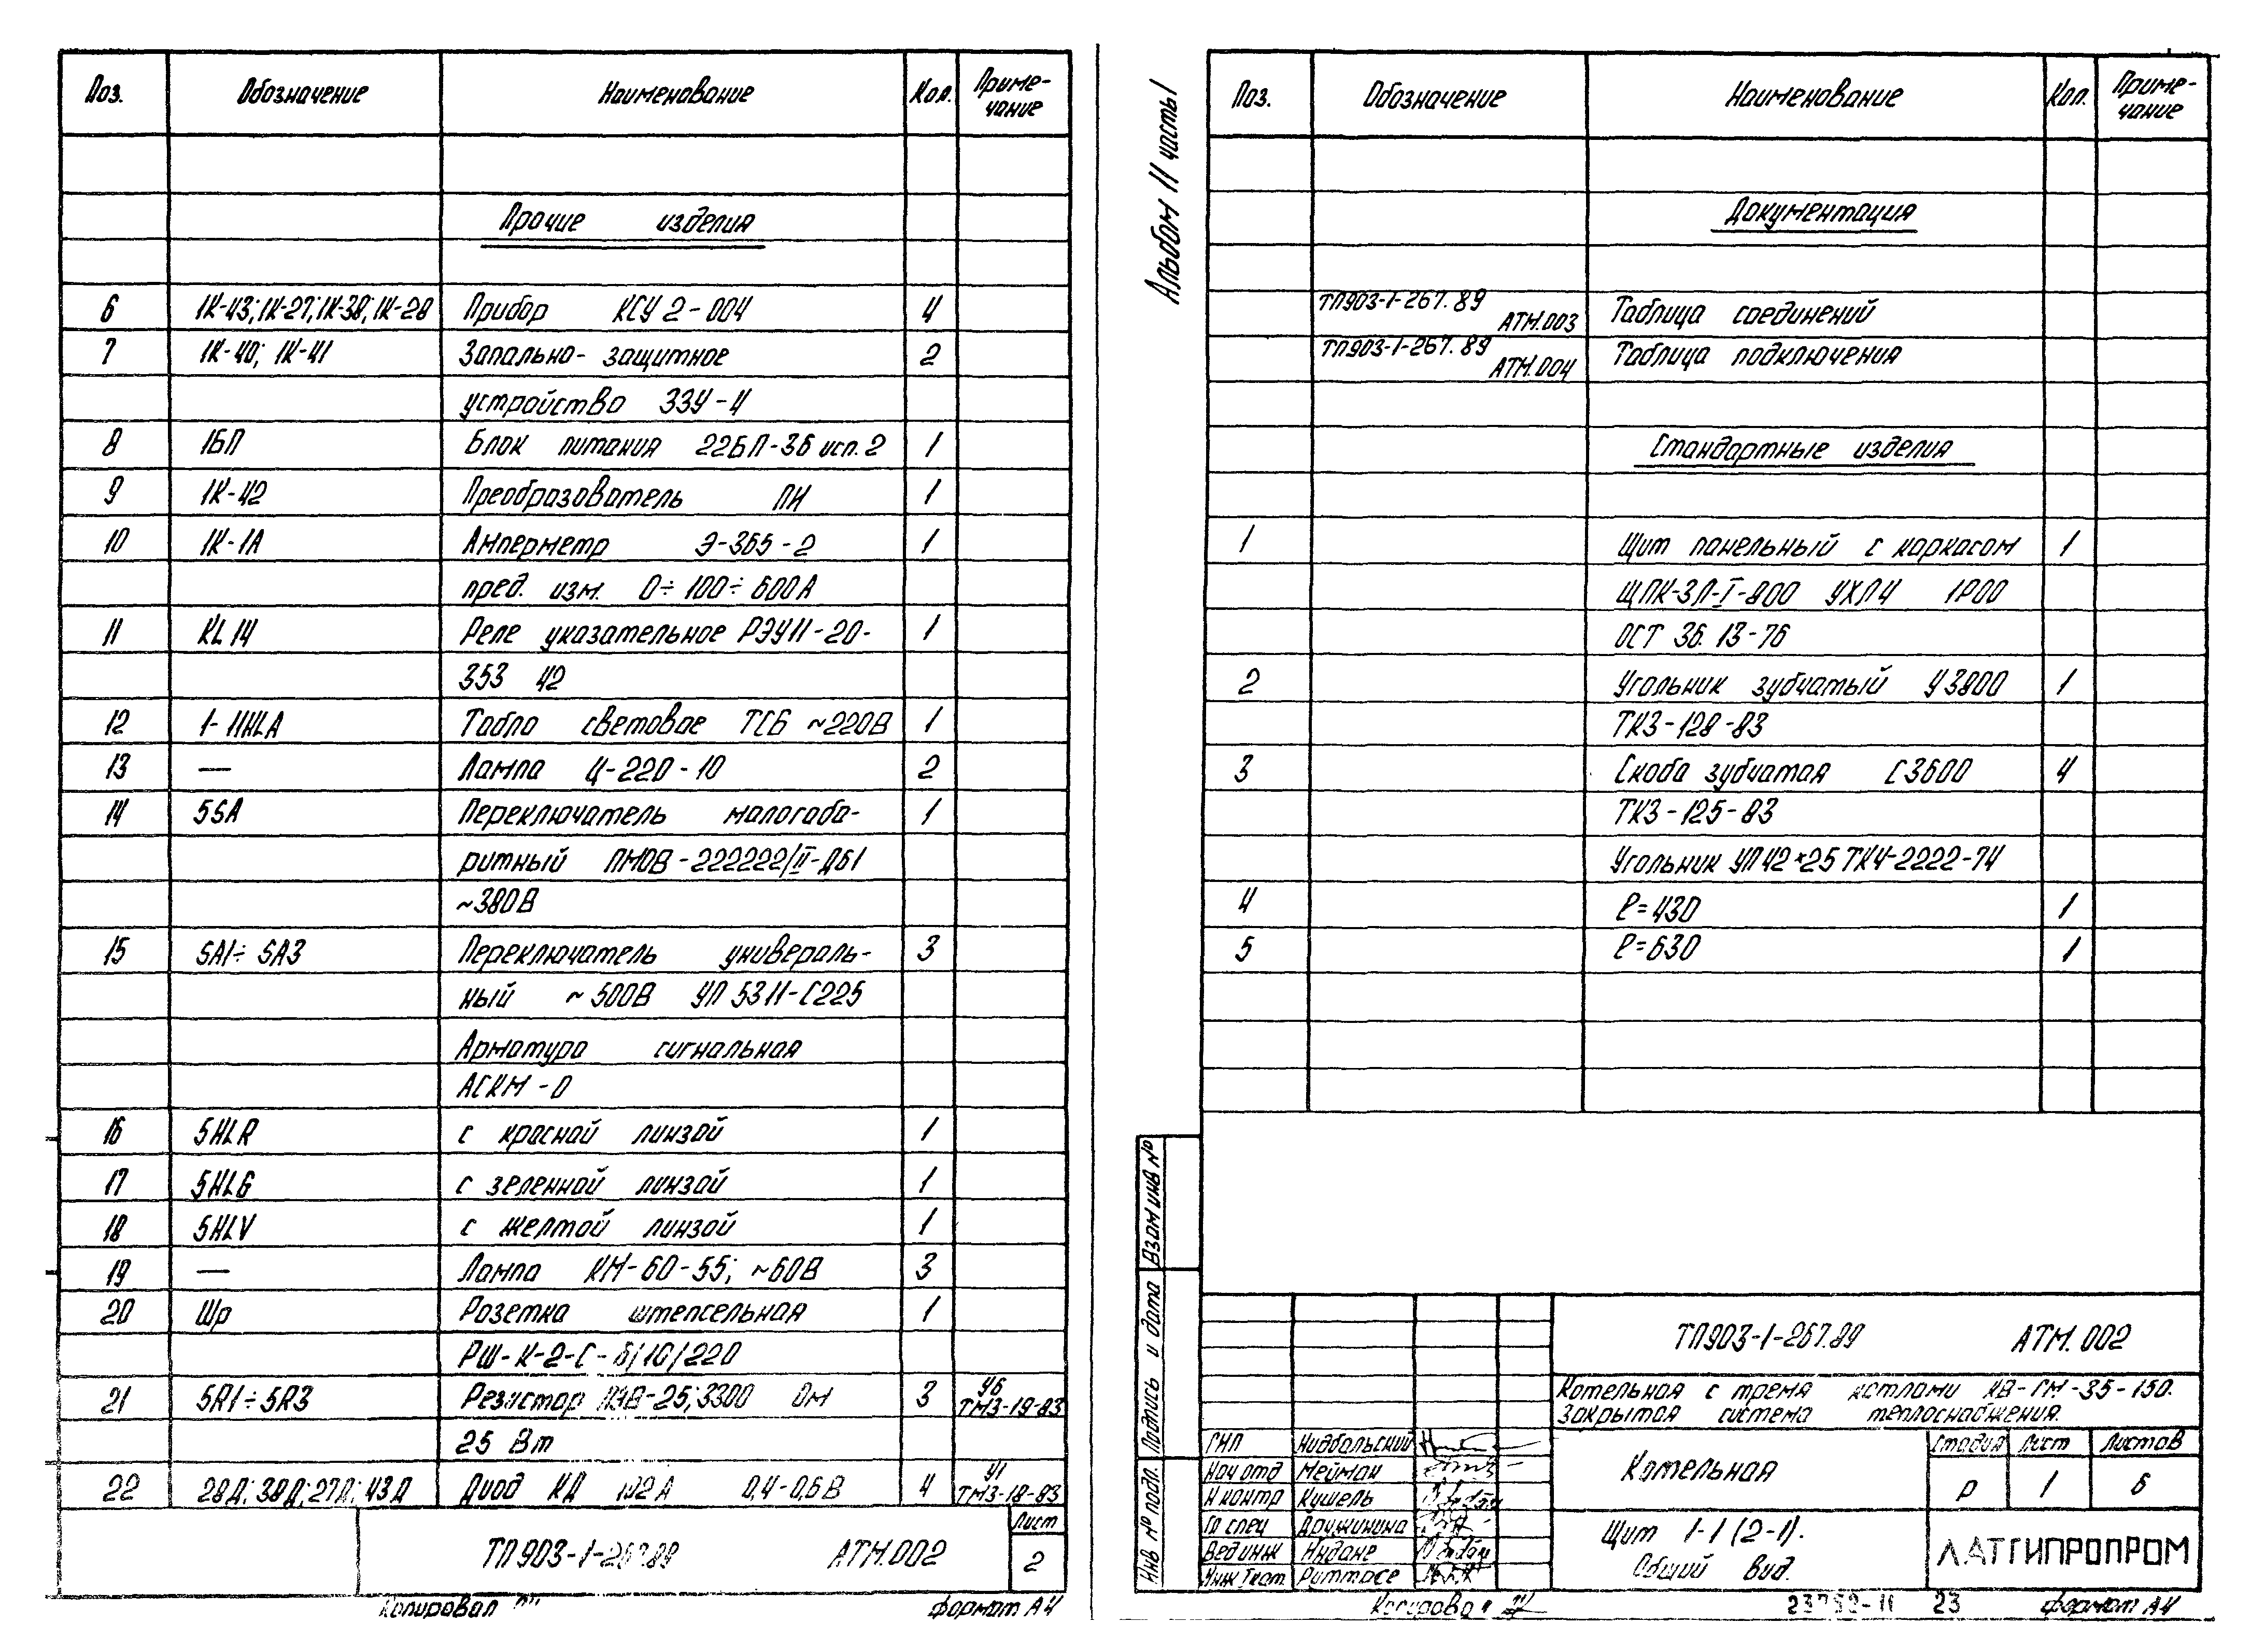 Поз. Обозначение Наименование Кол. Приме-
чание
Прочие изделия
6 1К-43; 1К-27; 1К-38; 1К-28 Прибор КСУ 2-004 4
7 1К-40; 1К-41 Запально-защитное 2
устройство ЗЗУ-4
8 1БП Блок питания 22БП-36 исп. 2 1
9 1К-42 Преобразователь ПИ 1
10 1К-1А Амперметр Э-365-2 1
пред. изм. 0÷100÷600А
11 KL14 Реле указательное РЭУ11-20- 1
353 42
12 1-11HLA Табло световое ТСБ ~220В 1
13 — Лампа Ц-220-10 2
14 5SA Переключатель малогаба- 1
ритный ПМОВ-222222/II-Д61
~380В
15 SA1÷SA3 Переключатель универаль- 3
ный ~500В УП 5311-С225
Арматура сигнальная
АСКМ-0
16 5HLR с красной линзой 1
17 5HLG с зеленной линзой 1
18 5HLV с желтой линзой 1
19 — Лампа КМ-60-55; ~60В 3
20 Шр Розетка штепсельная 1
РШ-К-2-С-6/10/220
21 5R1÷5R3 Резистор ПЭВ-25; 3300 Ом 3 У6
ТМ3-19-83
25 Вт
22 28Д; 38Д; 27Д; 43Д Диод КД 102А 0,4-0,6В 4 У1
ТМ3-18-83
ТП903-1-267.89 АТМ.002
Лист
2
Копировал
формат А4
Альбом II часть I
Поз. Обозначение Наименование Кол. Приме-
чание
Документация
ТП903-1-267.89 АТМ.003 Таблица соединений
ТП903-1-267.89 АТМ.004 Таблица подключения
Стандартные изделия
1 Щит панельный с каркасом 1
ЩПК-ЗП-I-800 УХЛ4 IР00
ОСТ 36.13-76
2 Угольник зубчатый У3800 1
ТК3-128-83
3 Скоба зубчатая С3600 4
ТК3-125-83
Угольник УП 42×25 ТК4-2222-74
4 ℓ=430 1
5 ℓ=630 1
Взам инв №
Подпись и дата
Инв № подл.
ТП903-1-267.89 АТМ.002
Котельная с тремя котлами КВ-ГМ-35-150.
Закрытая система теплоснабжения.
ГИП Нидбальский
Нач отд Мейман
Н контр Кушель
Гл спец Дружинина
Вед инж
Котельная
Стадия Лист Листов
Р 1 6
Щит 1-1 (2-1).
Общий вид.
ЛАТГИПРОПРОМ
Копировал
23752-11 23
формат А4